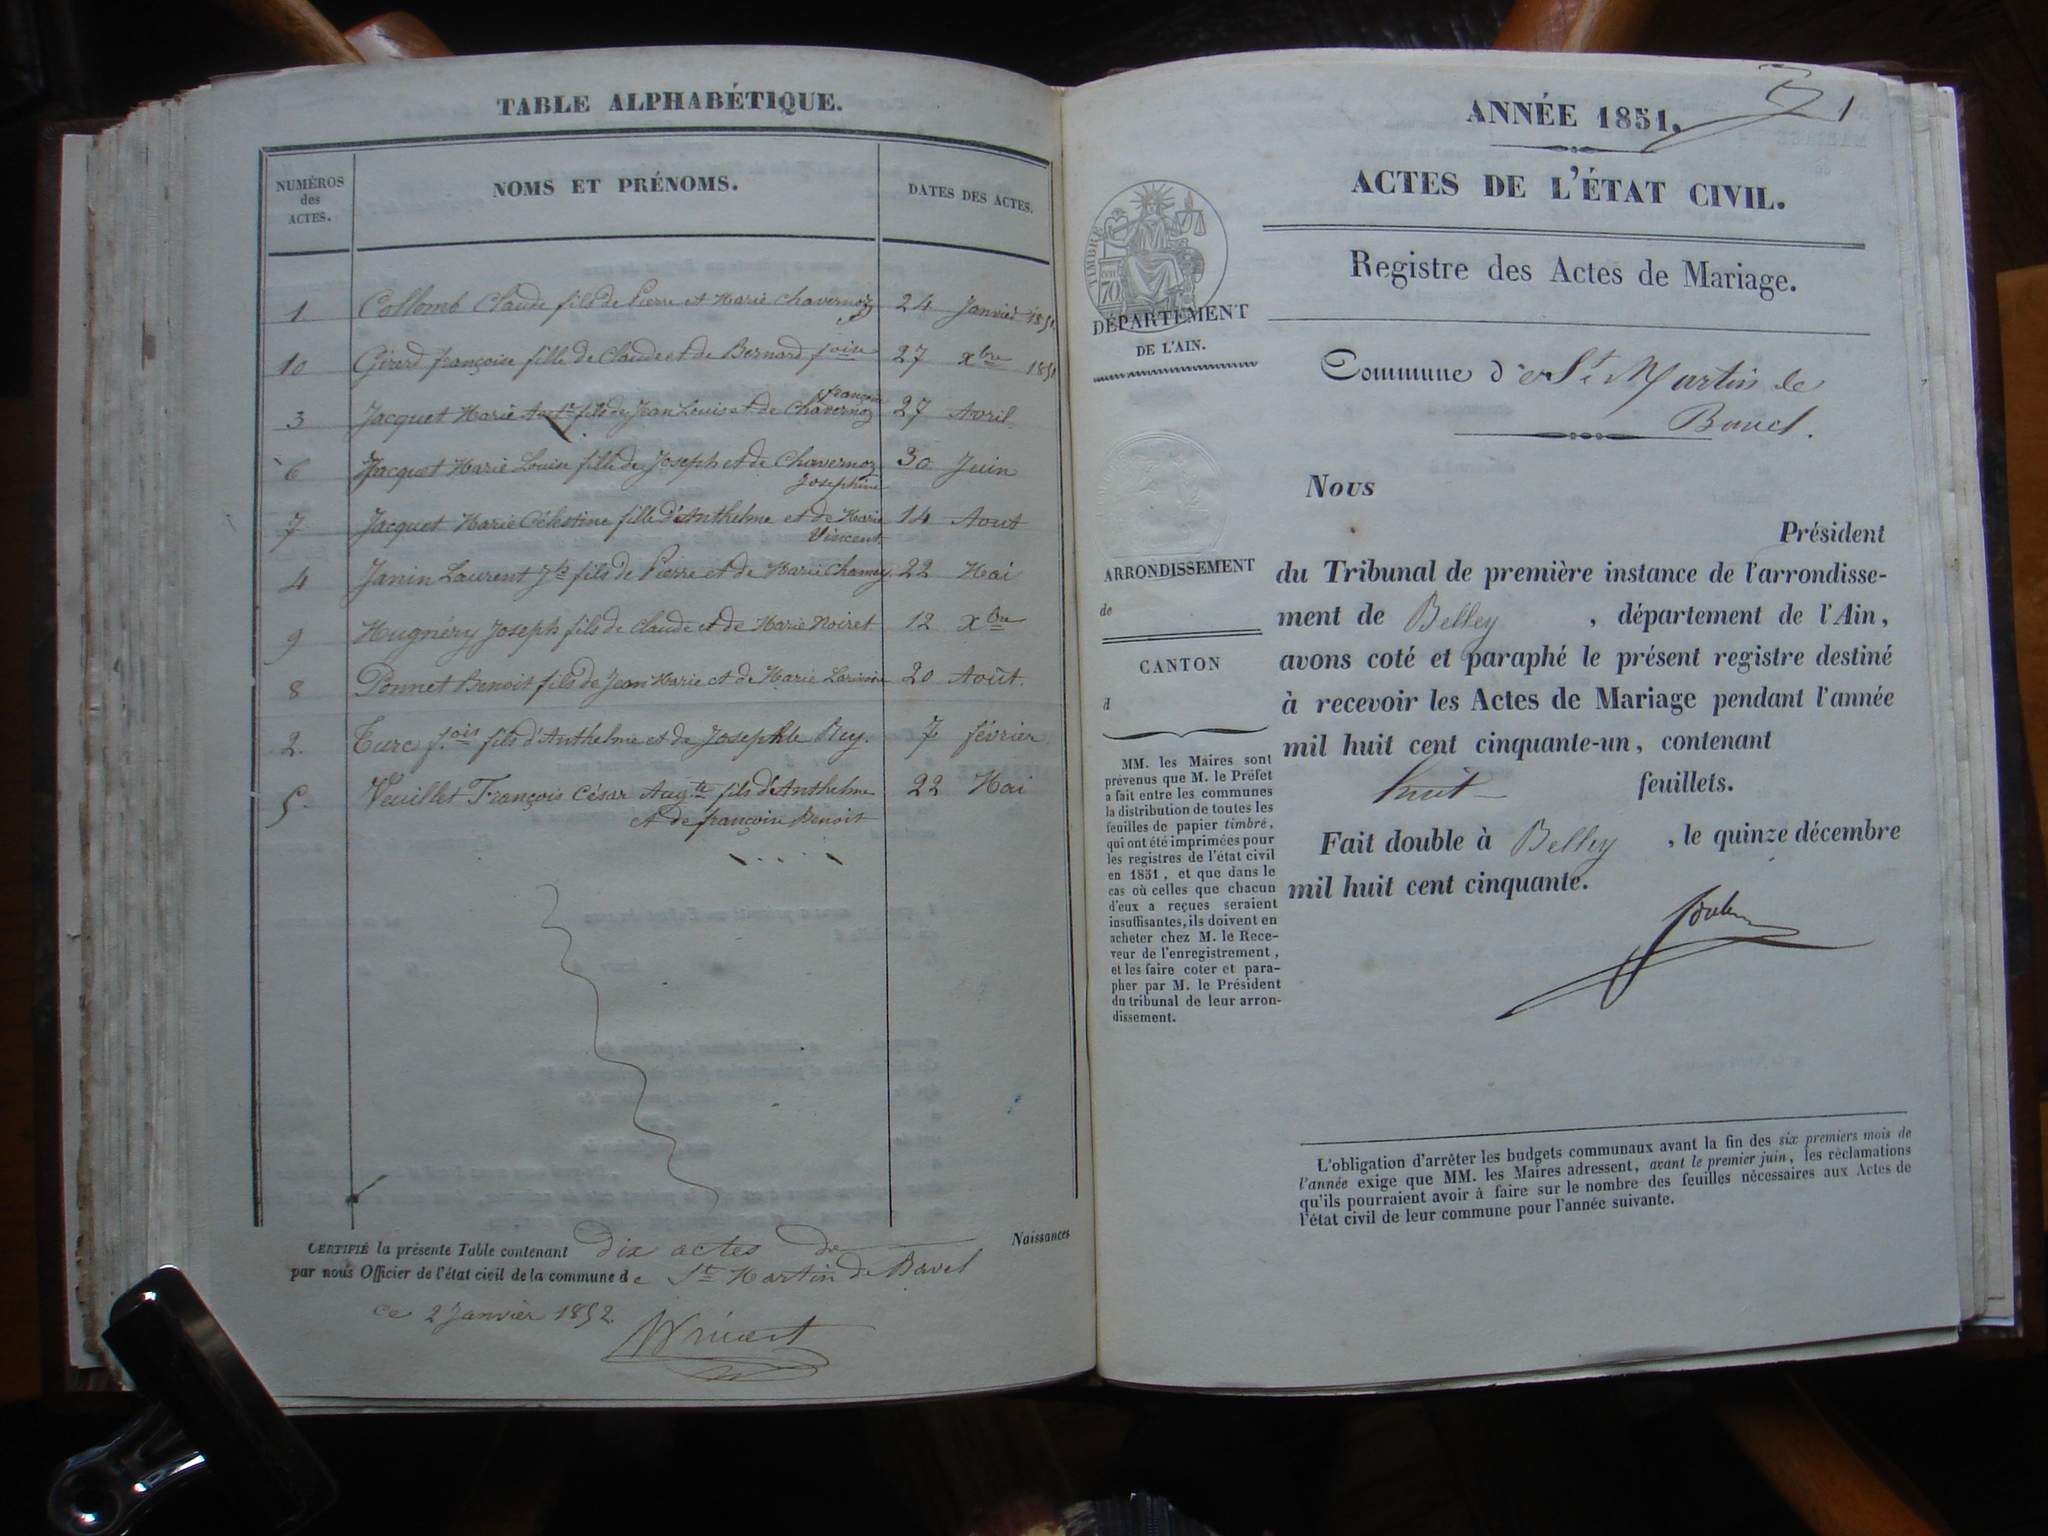 TABLE ALPHABÉTIQUE.
NUMÉROS
des
ACTES.
NOMS ET PRÉNOMS.
DATES DES ACTES.
1 Collomb Claude fils de Pierre et Marie Chavernoz 24 Janvier 1851
10 Gérard françoise fille de Claude et de Bernard foise 27 xbre 1851
françoise
3 Jacquet Marie Ant fils de Jean Louis et de Chavernoz 27 Avril
6 Jacquet Marie Louise fille de Joseph et de Chavernoz 30 Juin
Josephine
7 Jacquet Marie Célestine fille d'Anthelme et de Marie 14 Aout
Vincent
4 Janin Laurent Jh fils de Pierre et de Marie Chamey 22 Mai
9 Hugnéry Joseph fils de Claude et de Marie Noiret 12 xbre
8 Ponnet Benoit fils de Jean Marie et de Marie 20 Août.
2. Turc fois fils d'Anthelme et de Josephte Rey. 7 février
5. Veuillet François César Augte fils d'Anthelme 22 Mai
et de françoise Benoit
CERTIFIÉ la présente Table contenant Dix actes de Naissances
par nous Officier de l'état civil de la commune de St Martin de Bavel
ce 2 Janvier 1852.
Vincent
1
ANNÉE 1851.
ACTES DE L'ÉTAT CIVIL.
Registre des Actes de Mariage.
TIMBRE
70
DÉPARTEMENT
DE L'AIN.
Commune de St Martin de
Bavel.
ARRONDISSEMENT
de
CANTON
d
MM. les Maires sont
prévenus que M. le Préfet
a fait entre les communes
la distribution de toutes les
feuilles de papier timbré,
qui ont été imprimées pour
les registres de l'état civil
en 1851, et que dans le
cas où celles que chacun
d'eux a reçues seraient
insuffisantes, ils doivent en
acheter chez M. le Rece-
veur de l'enregistrement,
et les faire coter et para-
pher par M. le Président
du tribunal de leur arron-
dissement.
Nous
Président
du Tribunal de première instance de l'arrondisse-
ment de Belley , département de l'Ain,
avons coté et paraphé le présent registre destiné
à recevoir les Actes de Mariage pendant l'année
mil huit cent cinquante-un, contenant
huit feuillets.
Fait double à Belley , le quinze décembre
mil huit cent cinquante.
L'obligation d'arrêter les budgets communaux avant la fin des six premiers mois de
l'année exige que MM. les Maires adressent, avant le premier juin, les réclamations
qu'ils pourraient avoir à faire sur le nombre des feuilles nécessaires aux Actes de
l'état civil de leur commune pour l'année suivante.